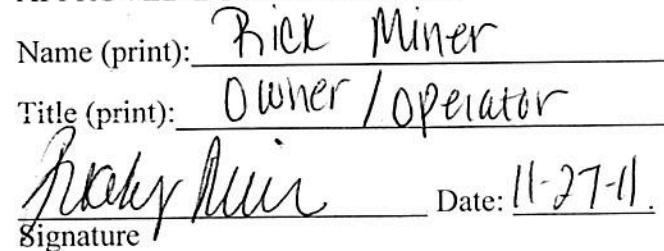 Name (print): Rick Miner
Title (print): Owner / Operator
Date: 11-27-11.
Signature